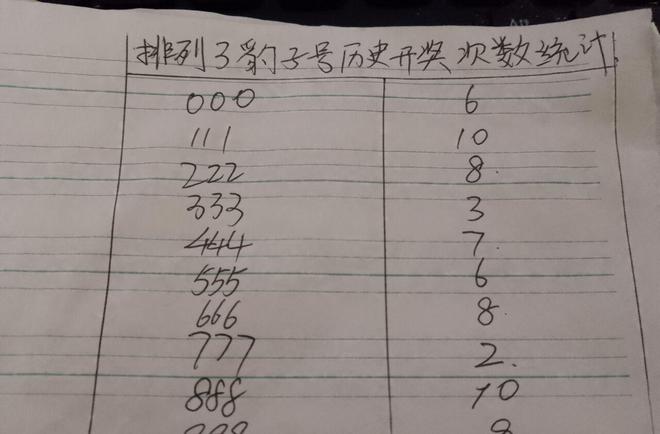 排列3豹子号历史开奖次数统计
000 6
111 10
222 8.
333 3
444 7.
555 6
666 8.
777 2.
888 10